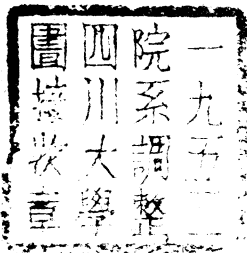 一九五二
院系調整
四川大學
圖書接收章